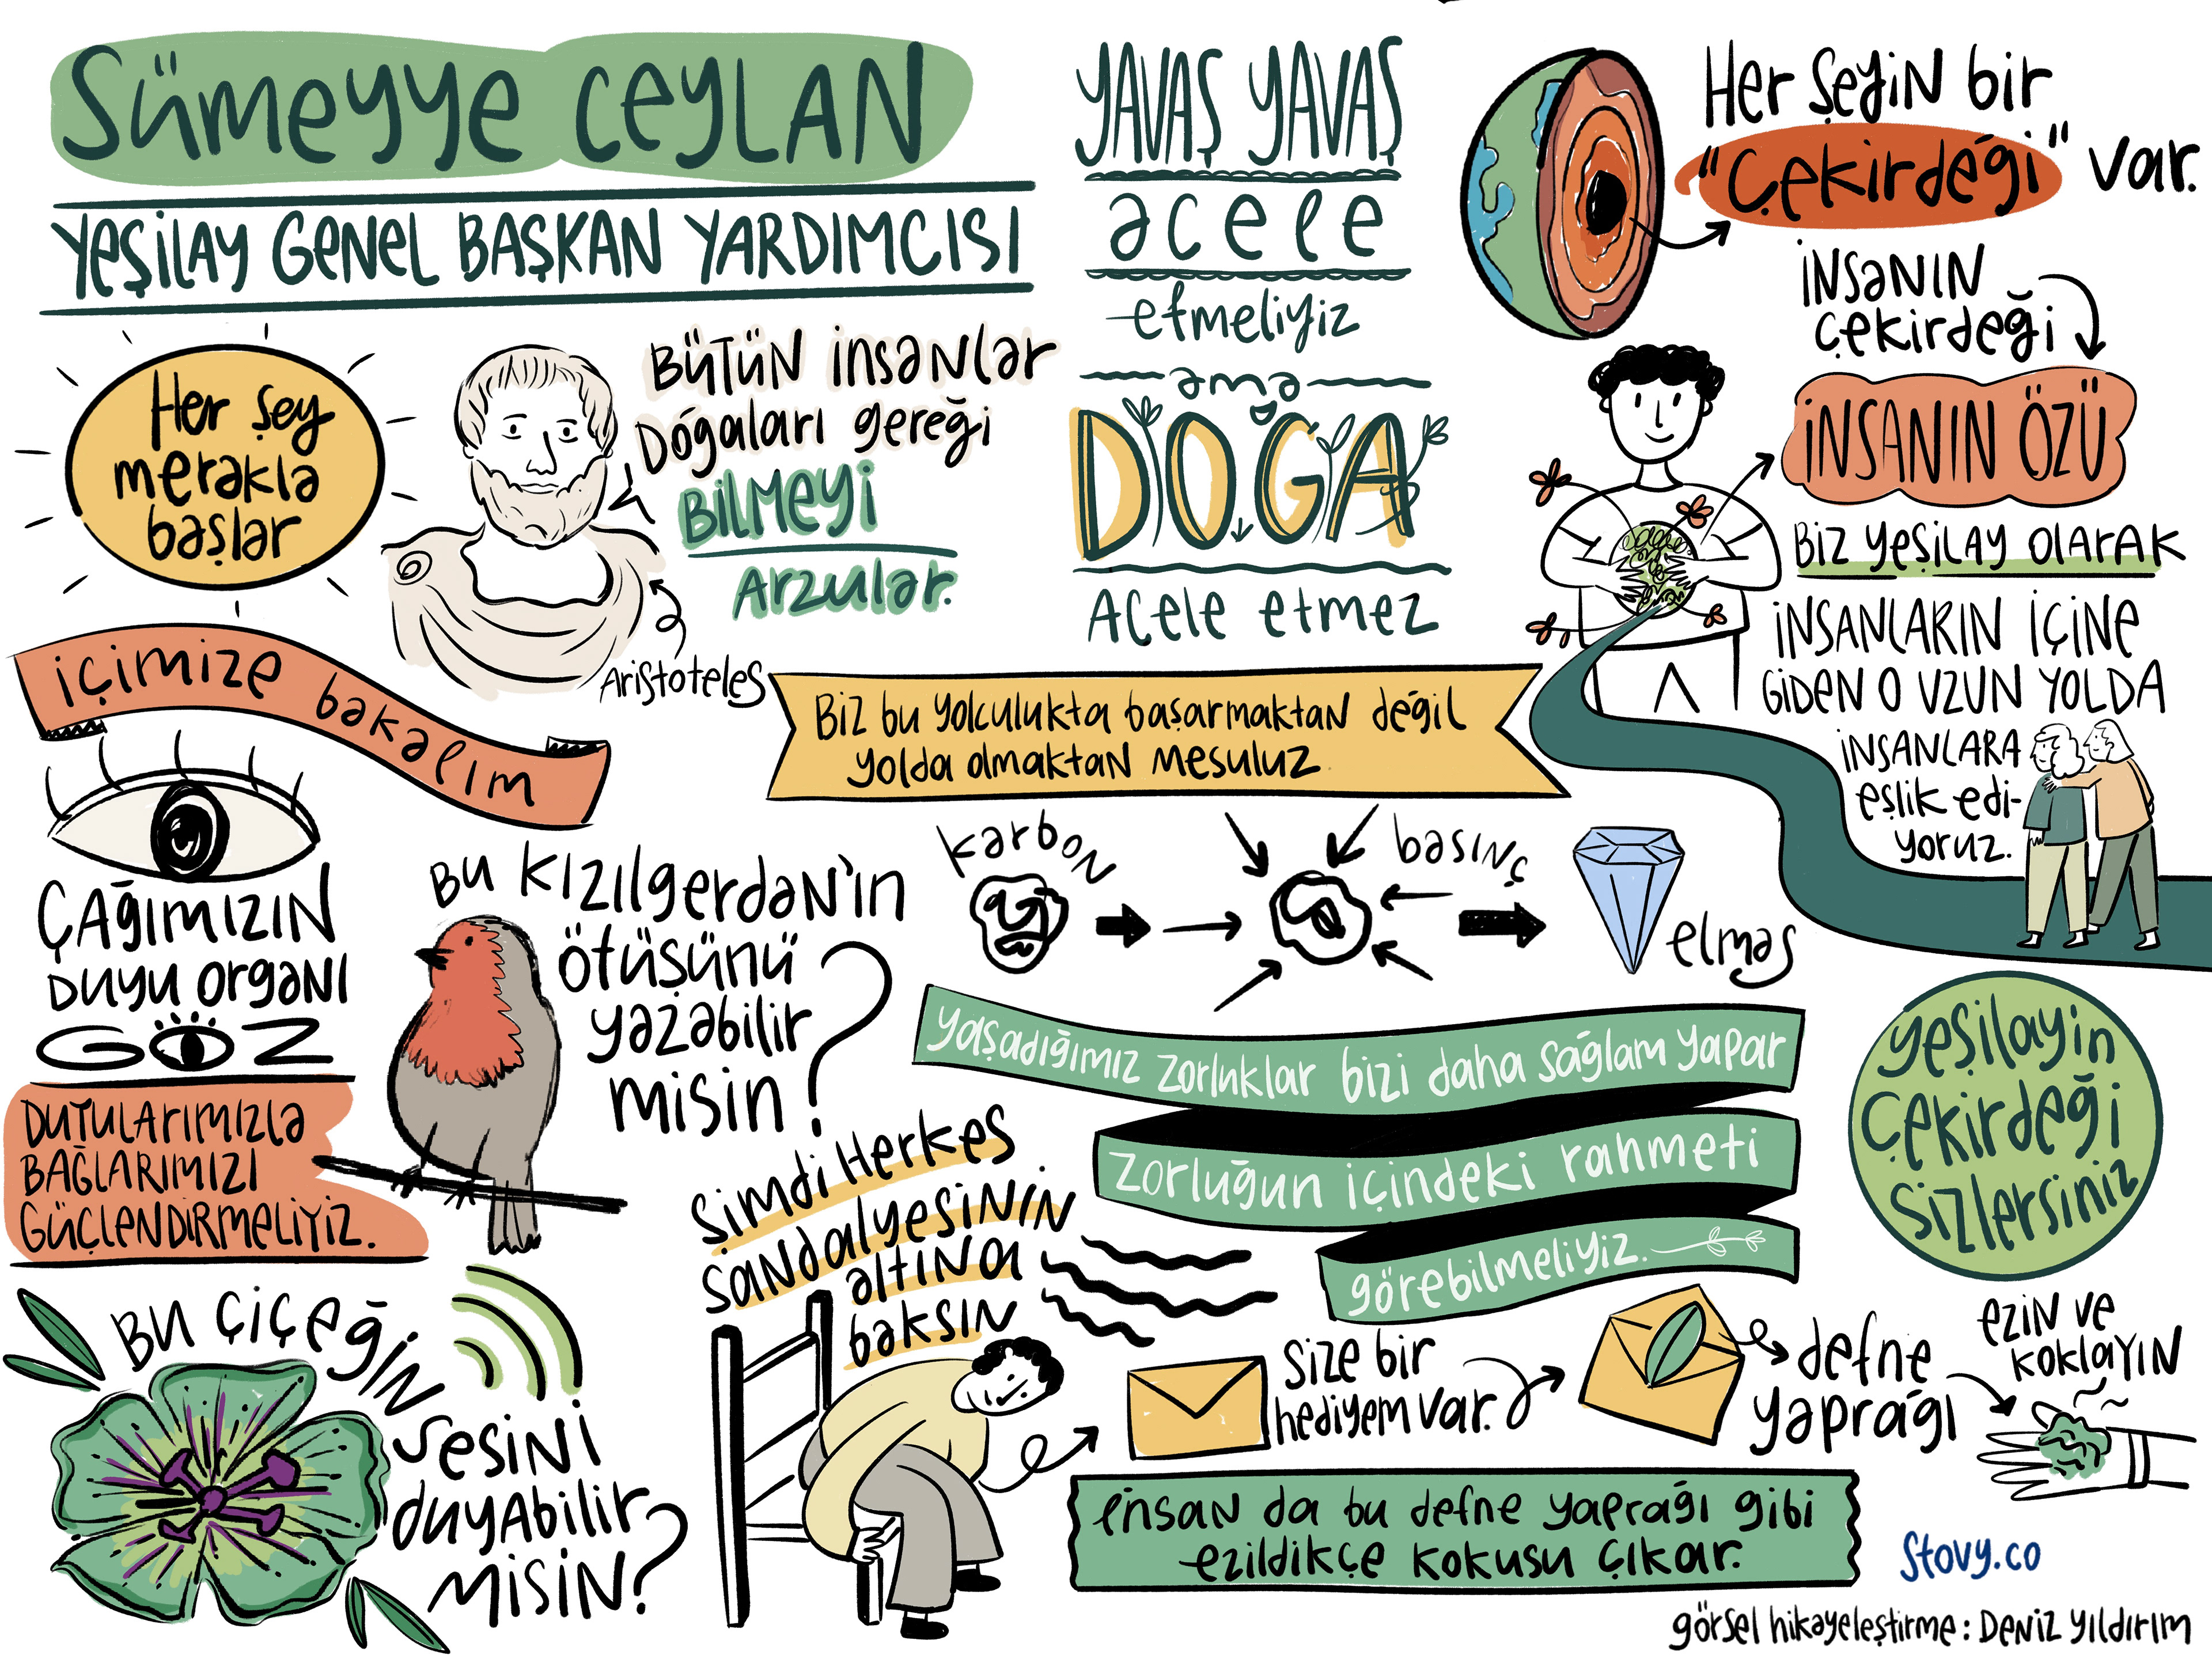 Sümeyye Ceylan
Yeşilay Genel Başkan Yardımcısı
Her şey
merakla
başlar
Bütün insanlar
Doğaları gereği
Bilmeyi
Arzular.
Aristoteles
Yavaş yavaş
acele
etmeliyiz
ama
DOĞA
Acele etmez
Her şeyin bir
"Çekirdeği" var.
insanın
çekirdeği
insanın özü
Biz yeşilay olarak
insanların içine
giden o uzun yolda
insanlara
eşlik edi-
yoruz.
içimize bakalım
Biz bu yolculukta başarmaktan değil
yolda olmaktan mesuluz
Çağımızın
duyu organı
GÖZ
Duyularımızla
bağlarımızı
güçlendirmeliyiz.
Bu kızılgerdan'ın
ötüşünü
yazabilir
misin?
karbon
basınç
elmas
yaşadığımız zorluklar bizi daha sağlam yapar
zorluğun içindeki rahmeti
görebilmeliyiz.
yeşilayin
çekirdeği
sizlersiniz
Bu çiçeğin
sesini
duyabilir
misin?
Şimdi Herkes
sandalyesinin
altına
baksın
size bir
hediyem var.
defne
yaprağı
ezin ve
koklayın
insan da bu defne yaprağı gibi
ezildikçe kokusu çıkar.
Stovy.co
görsel hikayeleştirme: Deniz Yıldırım